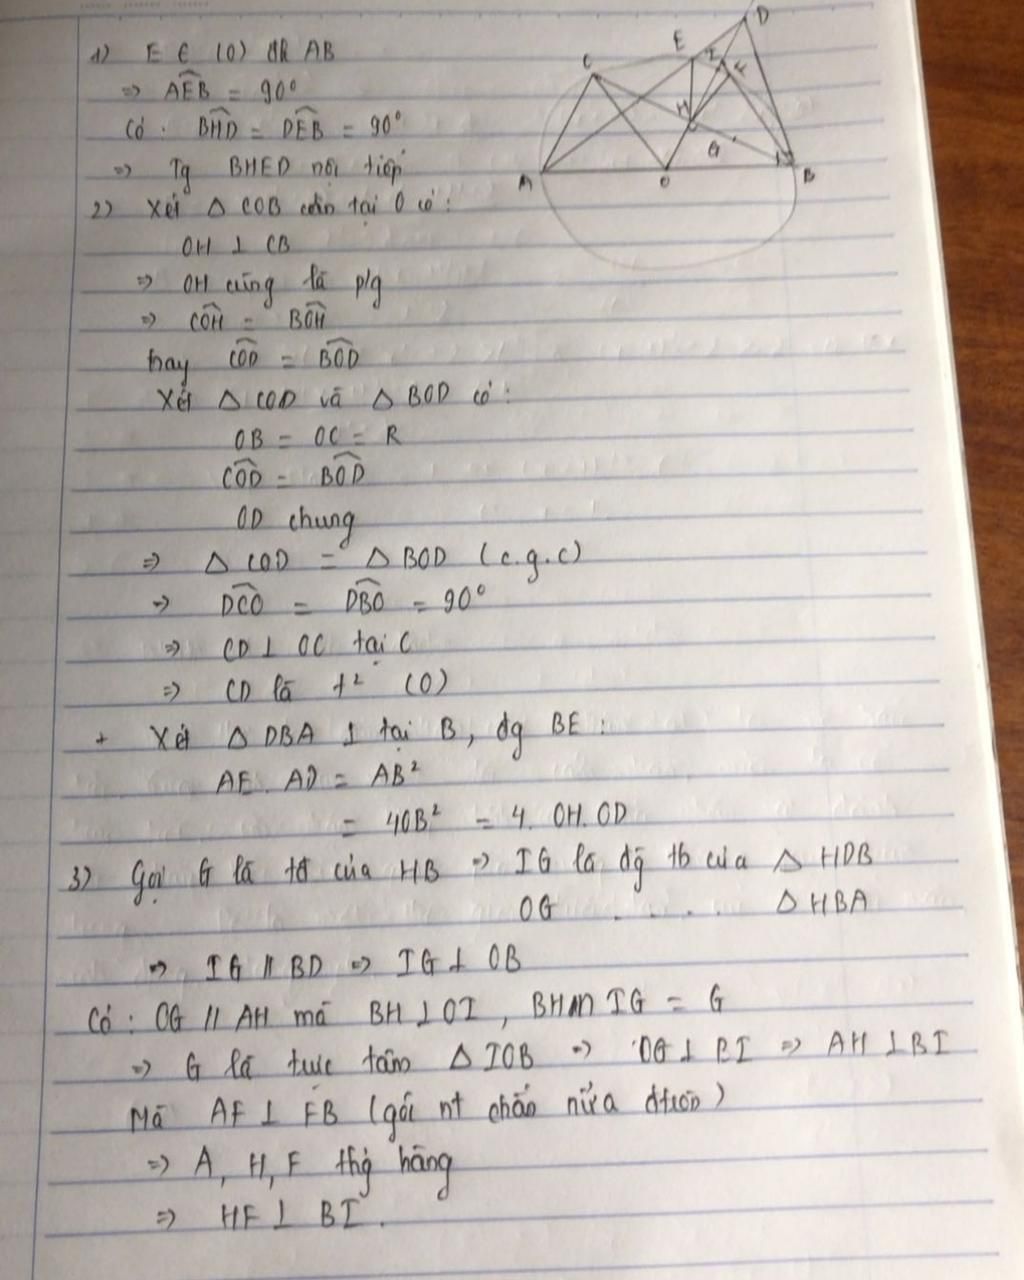 1) E ∈ (O) đk AB
=> AEB = 90°
Có : BHD = DEB = 90°
=> Tg BHED nội tiếp
2) Xét △ COB cân tại O có :
OH ⊥ CB
=> OH cũng là p/g
=> COH = BOH
hay COD = BOD
Xét △ COD và △ BOD có :
OB = OC = R
COD = BOD
OD chung
=> △ COD = △ BOD (c.g.c)
=> DCO = DBO = 90°
=> CD ⊥ OC tại C
=> CD là t² (O)
+ Xét △ DBA ⊥ tại B, đg BE :
AE . AD = AB²
= 4OB² = 4. OH. OD
3) Gọi G là tđ của HB => IG là đg tb của △ HDB
OG . . . . △ HBA
=> IG // BD => IG ⊥ OB
Có : OG // AH mà BH ⊥ OI , BH ∩ IG = G
=> G là trực tâm △ IOB => OG ⊥ BI => AH ⊥ BI
Mà AF ⊥ FB (góc nt chắn nửa đtròn)
=> A, H, F thg hàng
=> HF ⊥ BI .
C
E
I
D
F
H
G
A
O
B